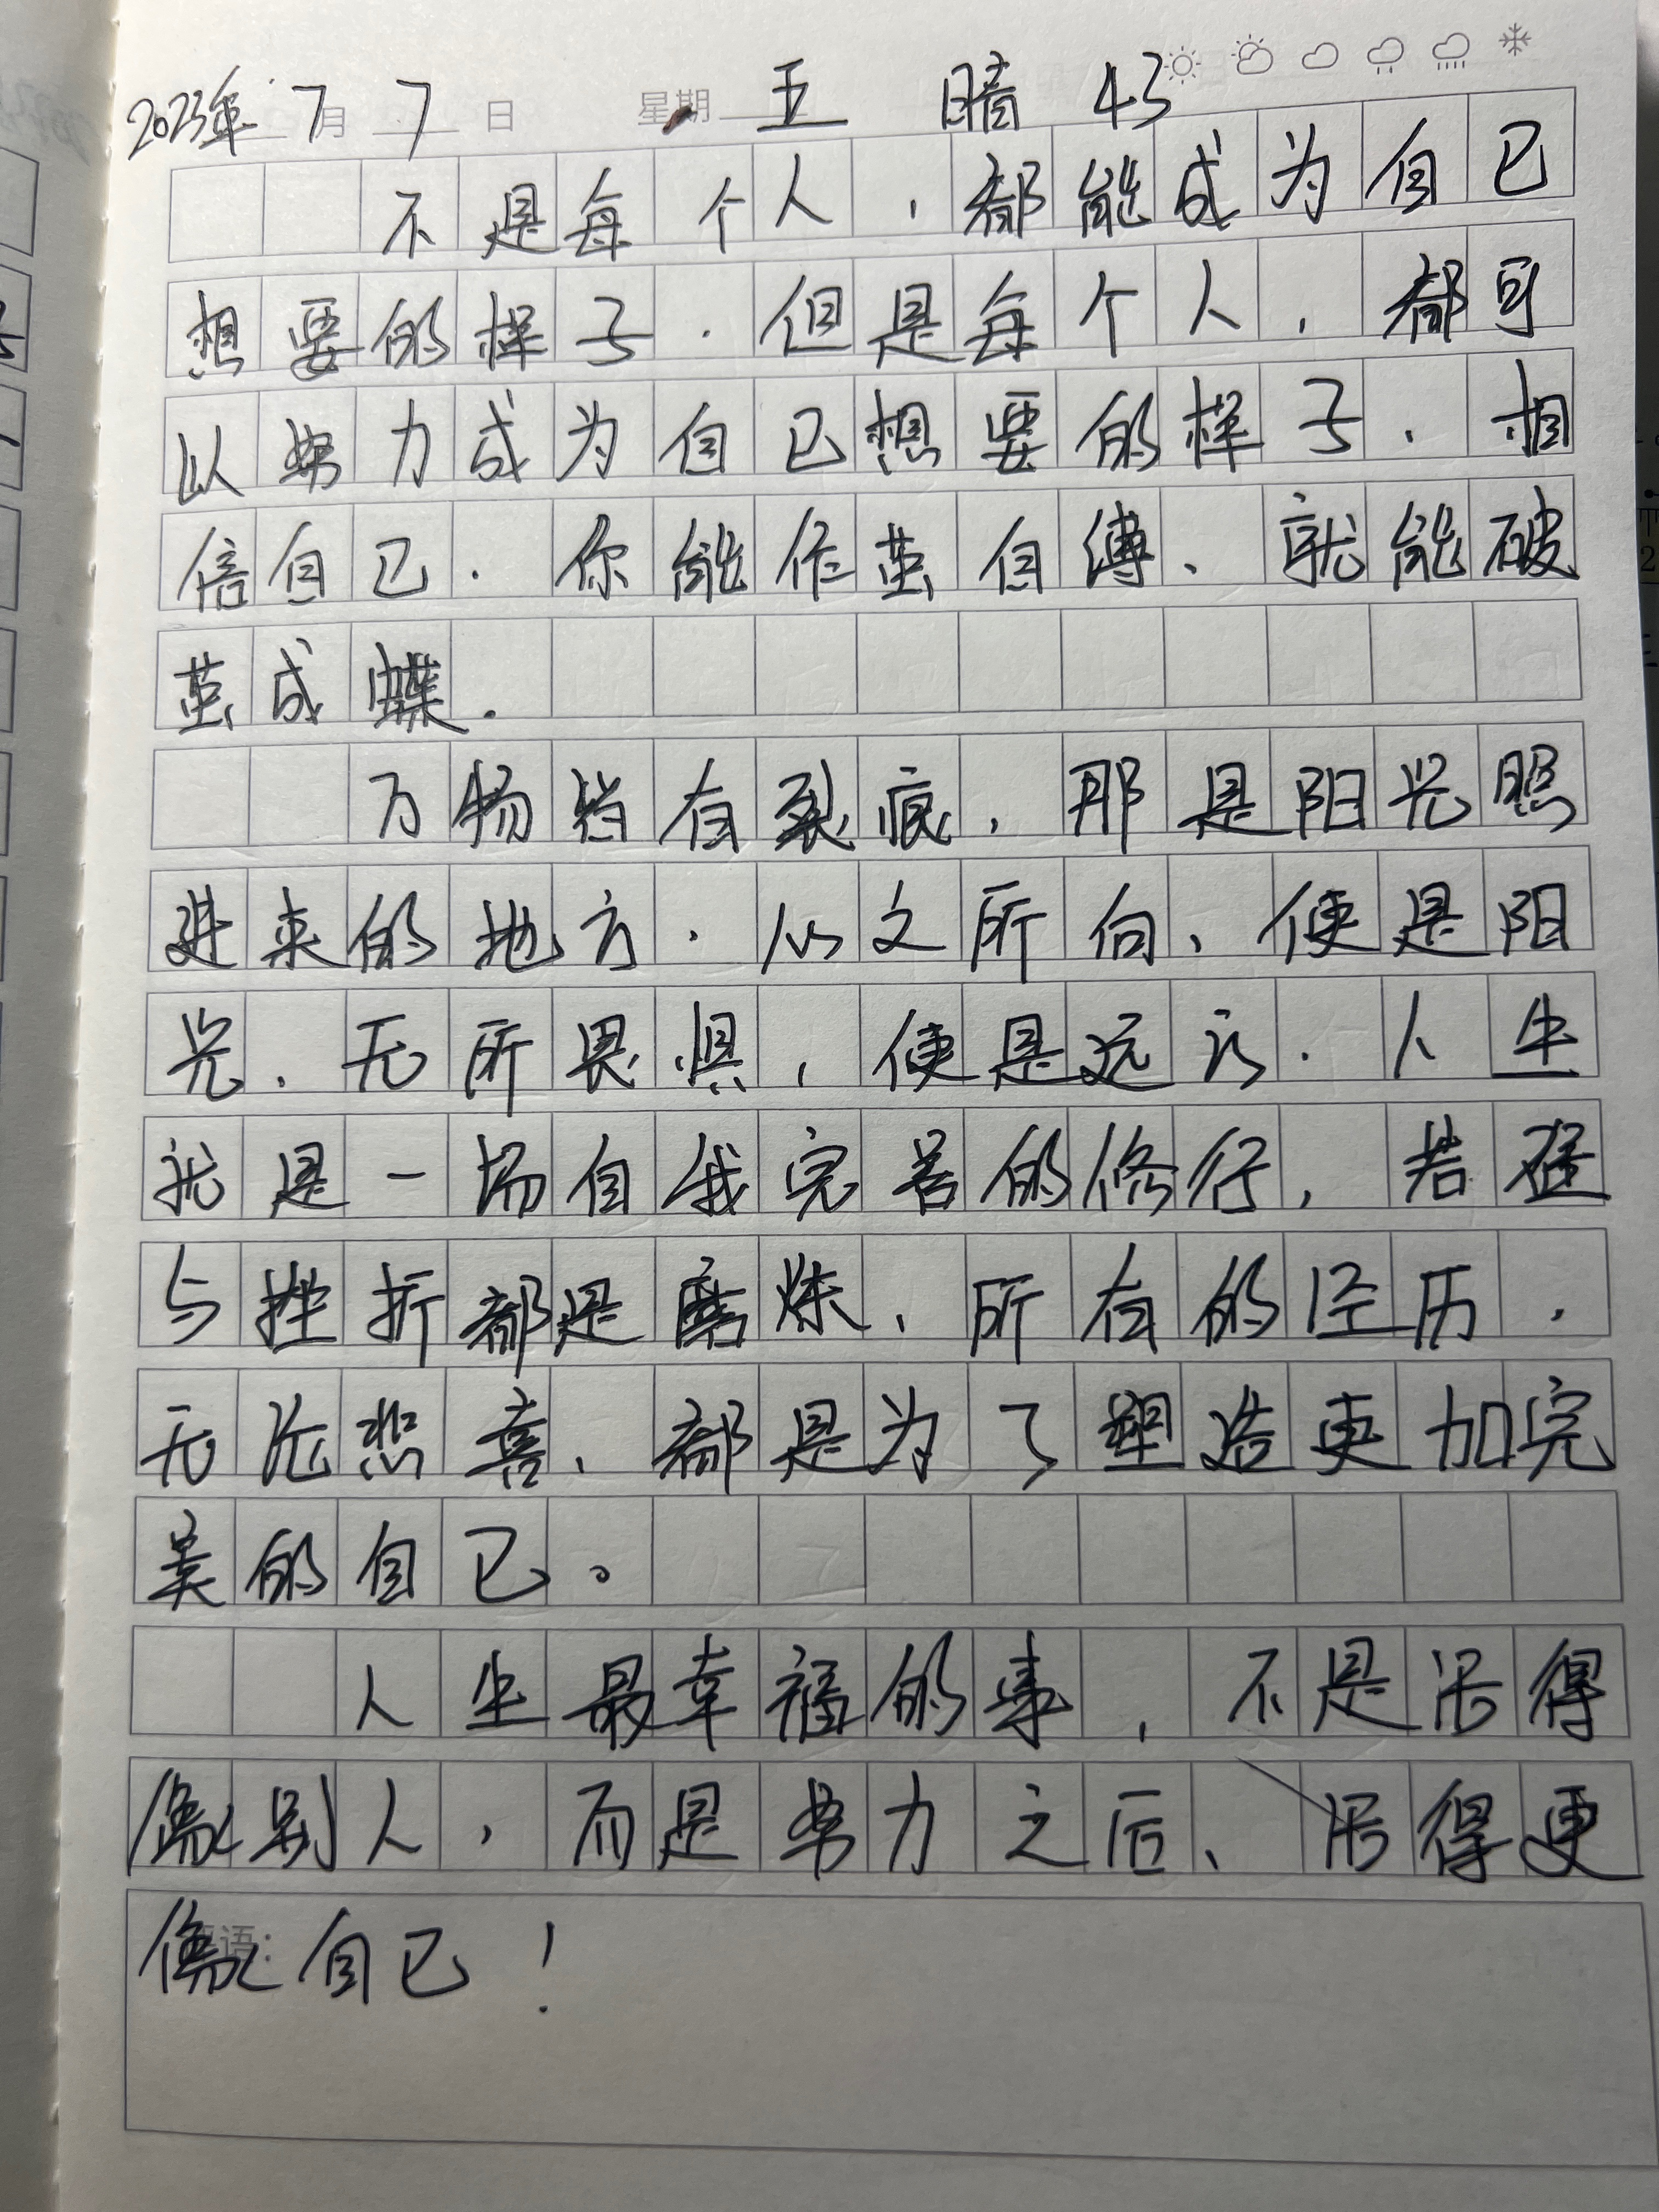 2023年 7月 7日 星期 五 晴 43
不是每个人，都能成为自己
想要的样子．但是每个人，都可
以努力成为自己想要的样子．相
信自己．你能作茧自缚、就能破
茧成蝶．
万物皆有裂痕，那是阳光照
进来的地方．心之所向、便是阳
光．无所畏惧，便是远方．人生
就是一场自我完善的修行，苦难
与挫折都是磨炼、所有的经历，
无论悲喜、都是为了塑造更加完
美的自己。
人生最幸福的事，不是活得
像别人，而是努力之后、活得更
像自己！